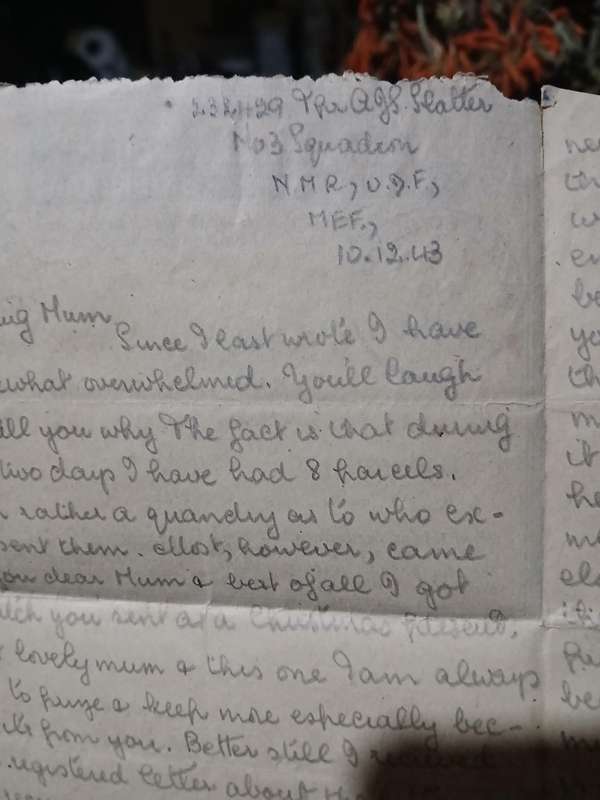 Tpr A.G.S. Slatter
No 3 Squadron
NMR, U.D.F,
MEF.,
10.12.43
Mum
Since I last wrote I have
what overwhelmed. You'll laugh
you why The fact is that during
two days I have had 8 parcels.
rather a quandry as to who ex-
sent them. Most, however, came
you dear Mum & best of all I got
you sent as a Christmas present.
lovely mum & this one I am always
to prize & keep more especially bec-
from you. Better still I received
registered letter about
ne
th
w
en
be
yo
th
m
it
he
me
els
be